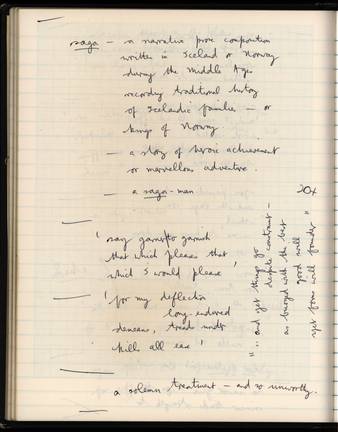 saga – a narrative prose composition
written in Iceland or Norway
during the Middle Ages
recording traditional history
of Icelandic families – or
kings of Norway
– a story of heroic achievement
or marvellous adventure.
– a saga-man
204
' may garnish to garnish
that which pleases that
which I would please '
' for my deflection
long-endured
demeans,
kills all ease '
" .. and yet things go
despite constraint –
as buoyed with the best
good will
yet form will founder "
a solemn treatment – and so unworthy.